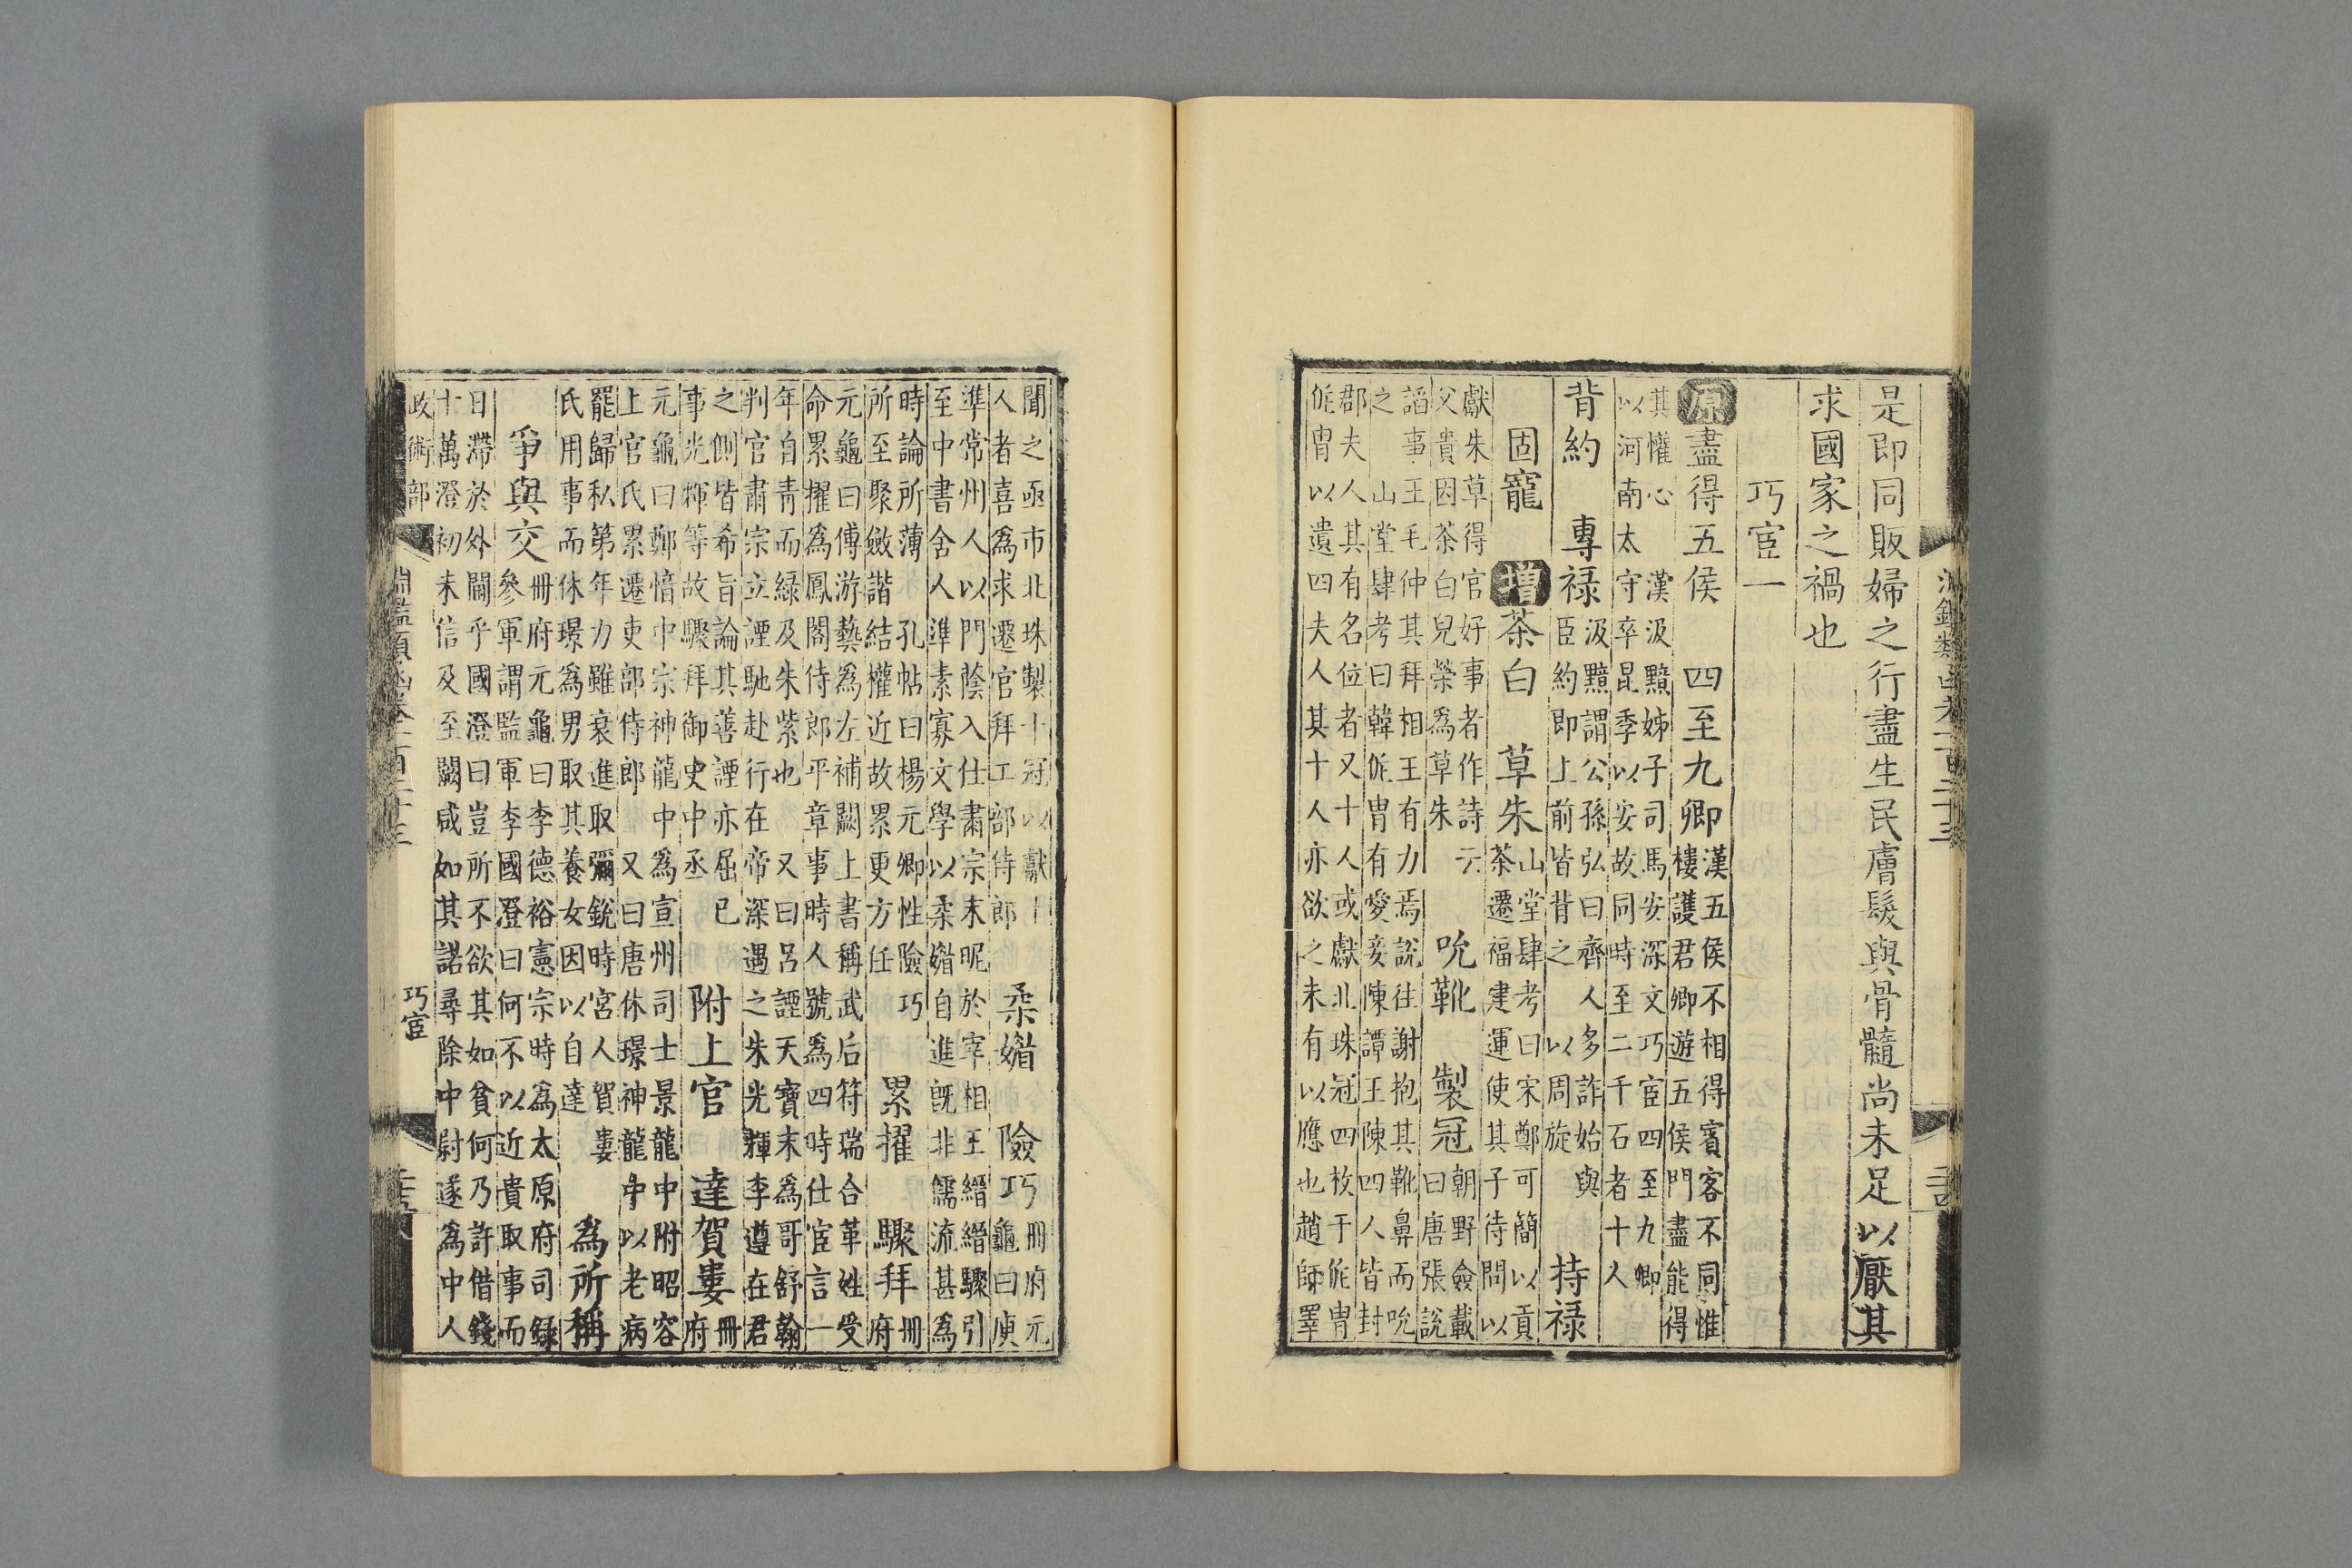 是即同販婦之行盡生民膚髮與骨髓尚未足以厭其
求國家之禍也
巧宦一
原盡得五侯 四至九卿 漢五侯不相得賓客不同惟
樓護君卿遊五侯門盡能得
其懽心 漢汲黯姊子司馬安深文巧宦四至九卿
以河南太守卒昆季以安故同時至二千石者十人
背約 專祿 汲黯謂公孫弘曰齊人多詐始與
臣約即上前皆背之 以周旋 持祿
固寵 增茶白 草朱 山堂肆考曰宋鄭可簡以貢
茶遷福建運使其子待問以
獻朱草得官好事者作詩云
父貴因茶白兒榮為草朱 吮靴 製冠 朝野僉載
曰唐張說
謟事王毛仲其拜相王有力焉說往謝抱其靴鼻而吮
之 山堂肆考曰韓侂冑有愛妾陳譚王陳四人皆封
郡夫人其有名位者又十人或獻北珠冠四枚于侂冑
侂冑以遺四夫人其十人亦欲之未有以應也趙師睪
聞之亟市北珠製十冠以獻十
人者喜為求遷官拜工部侍郎 柔媚 險巧 冊府元
龜曰庾
準常州人以門蔭入仕肅宗末昵於宰相王縉縉驟引
至中書舍人準素寡文學以柔媚自進既非儒流甚為
時論所薄 孔帖曰楊元卿性險巧
所至聚斂諧結權近故累更方任 累擢 驟拜 冊
府
元龜曰傅游藝為左補闕上書稱武后符瑞合革姓受
命累擢為鳳閣侍郎平章事時人號為四時仕宦言一
年自青而綠及朱紫也 又曰呂諲天寶末為哥舒翰
判官肅宗立諲馳赴行在帝深遇之朱光輝李遵在君
之側皆希旨論其善諲亦屈已
事光輝等故驟拜御史中丞 附上官 達賀婁 冊
府
元龜曰鄭愔中宗神龍中為宣州司士景龍中附昭容
上官氏累遷吏部侍郎 又曰唐休璟神龍中以老病
罷歸私第年力雖衰進取彌銳時宮人賀婁
氏用事而休璟為男取其養女因以自達 為所稱
爭與交 冊府元龜曰李德裕憲宗時為太原府司錄
參軍謂監軍李國澄曰何不以近貴取事而
日滯於外閫乎國澄曰豈所不欲其如貧何乃許借錢
十萬澄初未信及至闕咸如其諾尋除中尉遂為中人
政術部 淵鑑類函卷一百二十三 巧宦